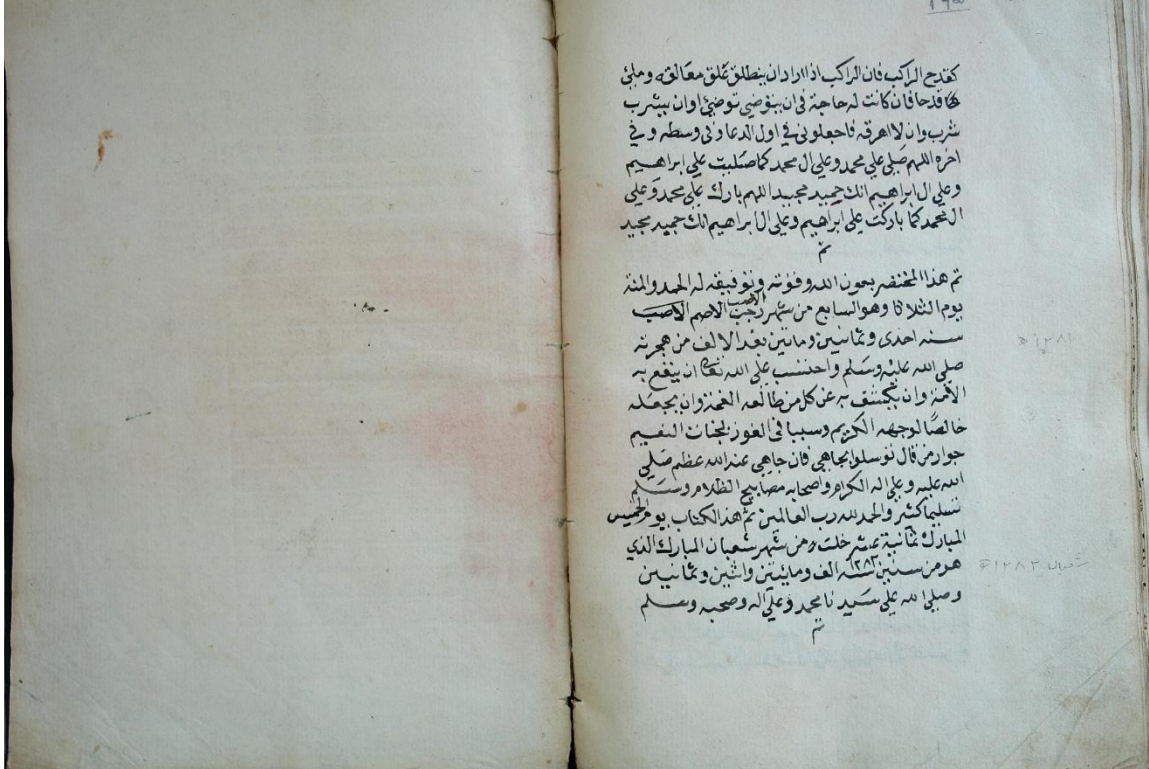 كقدح الراكب فان الراكب اذا اراد ان ينطلق علق معالقه وملئ
قدحا فان كانت له حاجة في ان يتوضي توضئ اوان يشرب
شرب وان لا اهرقه فاجعلوني في اول الدعا وفي وسطه وفي
اخره اللهم صلي علي محمد وعلي ال محمد كما صليت علي ابراهيم
وعلي ال ابراهيم انك حميد مجيد اللهم بارك علي محمد وعلي
ال محمد كما باركت علي ابراهيم وعلي ال ابراهيم انك حميد مجيد
تم
تم هذا المختصر بعون الله وقوته وتوفيقه له الحمد والمنه
يوم الثلاثا وهو السابع من شهر رجب الاصم الاصب
سنه احدى وثمانيين وماتين بعد الالف من هجرته
صلي الله عليه وسلم واحتسب علي الله تعا ان ينفع به
الامة وان يكشف به عن كل من طالعه الغمة وان يجعله
خالصا لوجهه الكريم وسببا في الفوز بجنات النعيم
جوار من قال توسلوا بجاهي فان جاهي عند الله عظم صلي
الله عليه وعلي اله الكرام واصحابه مصابيح الظلام وسلم
تسليما كثير والحمد لله رب العالمين تم هذا الكتاب يوم الخميس
المبارك ثمانية عشر خلت من شهر شعبان المبارك الذي
هو من سنين سنه ١٢٨٢ الف ومايتين واثنين وثمانيين
وصلي الله علي سيدنا محمد وعلي اله وصحبه وسلم
تم
١٢٨١ ه
شعبان ١٢٨٢ ه